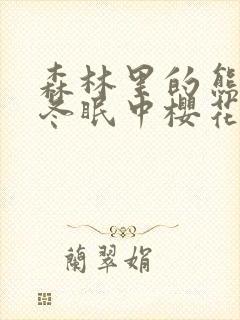 森林里的熊
冬眠中櫻花
蘭翠娟